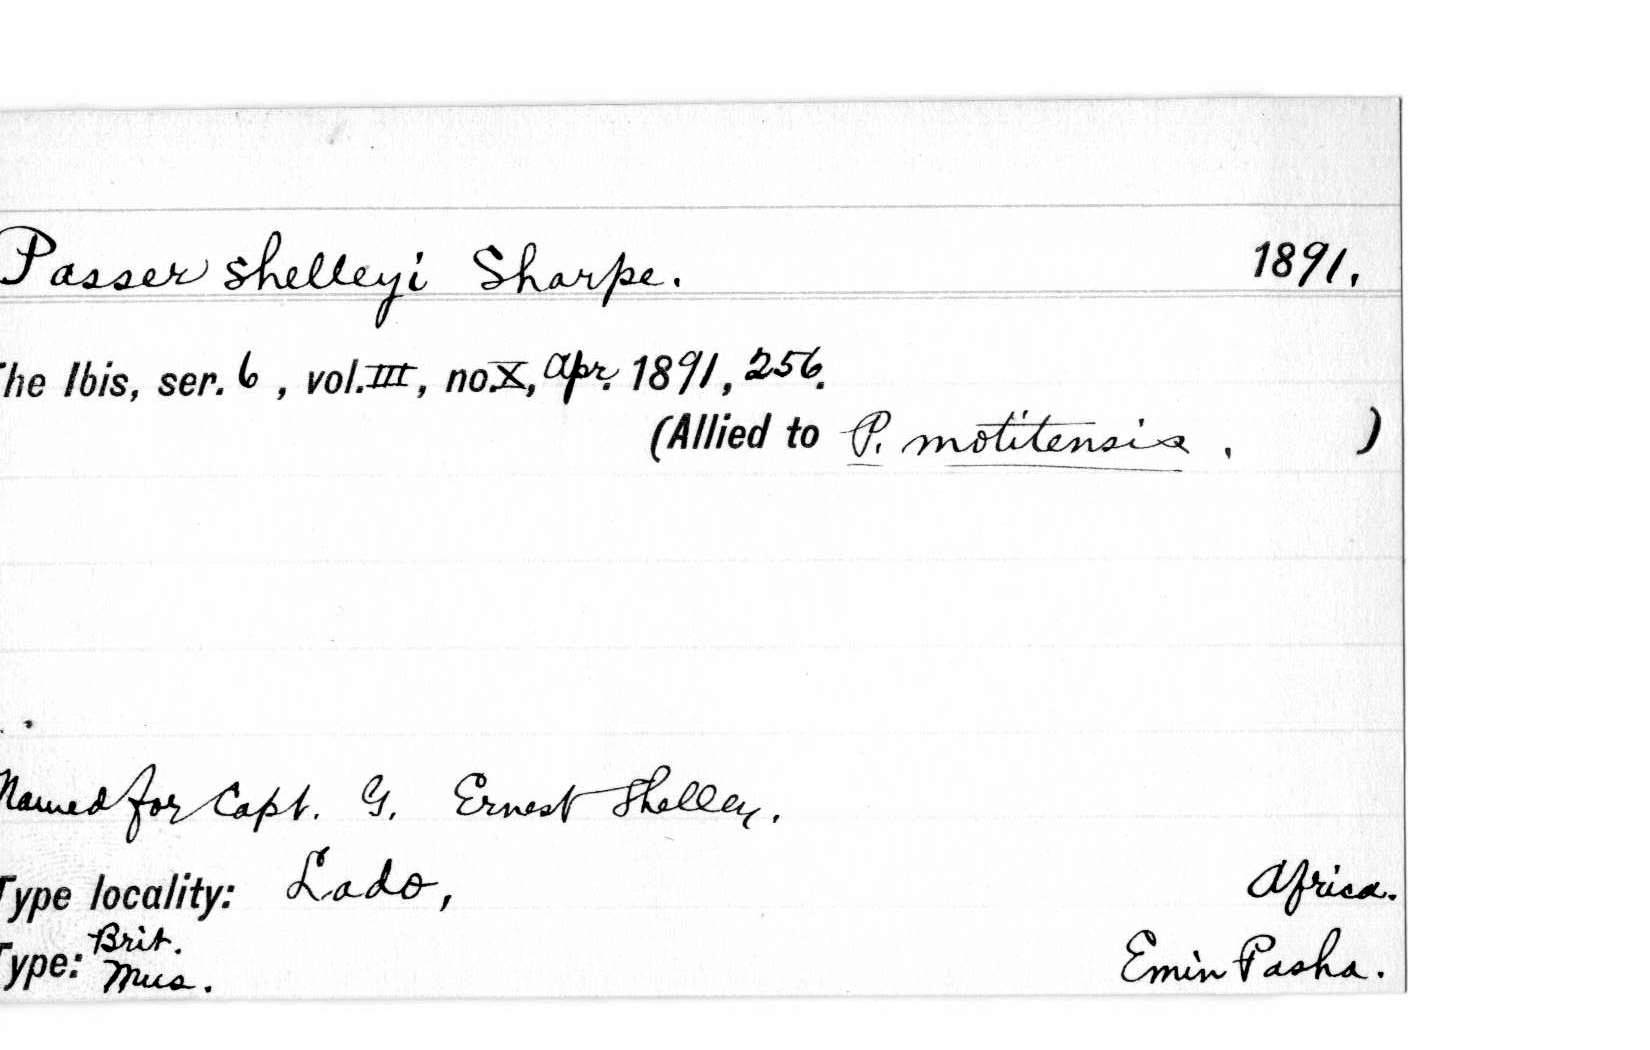 Passer shelleyi Sharpe. 1891.
The Ibis, ser. 6, vol. III, no. X, Apr. 1891, 256.
(Allied to P. motitensis. )
Named for Capt. G. Ernest Shelley.
Type locality: Lado, Africa.
Type: Brit. Mus. Emin Pasha.